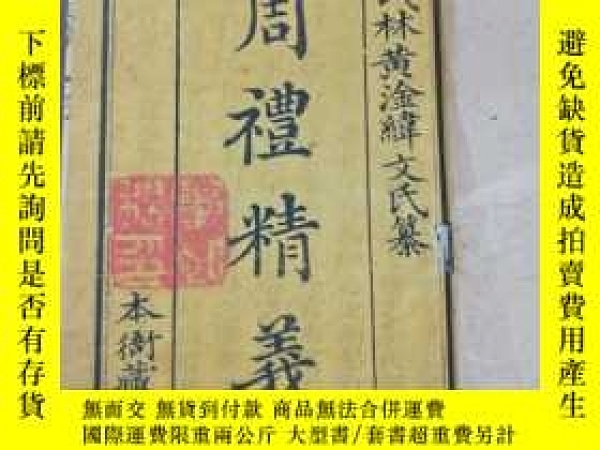 下標前請先詢問是否有存貨
避免缺貨造成拍賣費用產生
林黃淦緯文氏纂
周禮精義
本衙藏
無面交 無貨到付款 商品無法合併運費
國際運費限重兩公斤 大型書/套書超重費另計